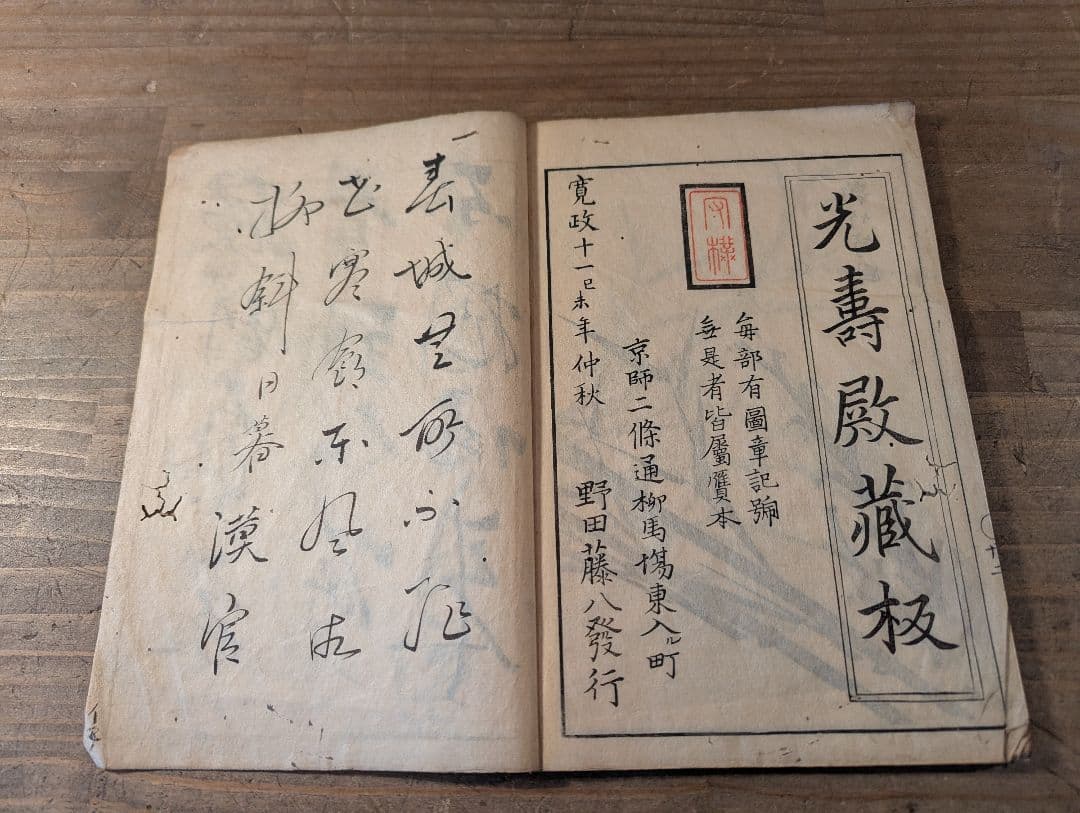 光壽殿藏板
毎部有圖章記號
無是者皆屬贋本
京師二條通柳馬塲東入ル町
野田藤八發行
寛政十一己未年仲秋
春城無處不飛
花寒食東風御
柳斜日暮漢宮